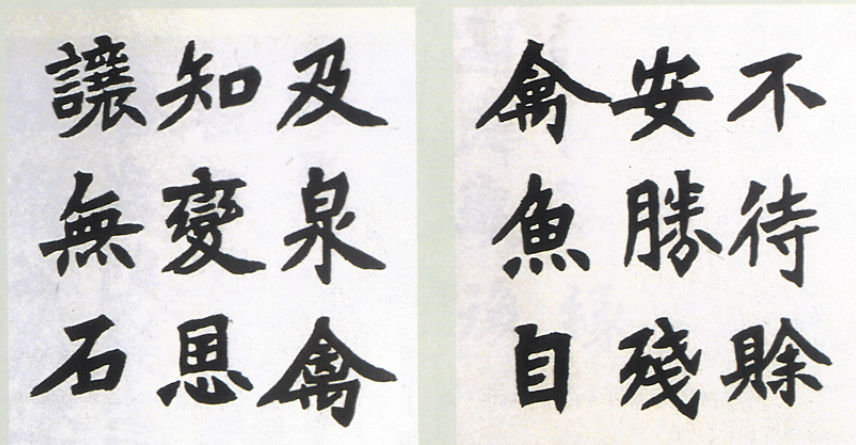 不待賒
安勝殘
禽魚自
及泉禽
知變思
讓無石